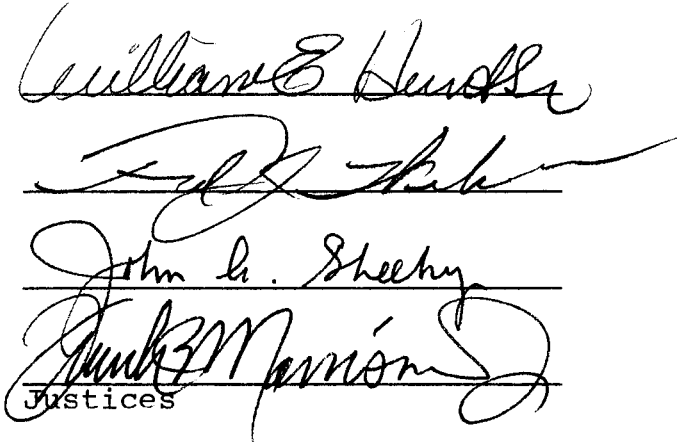 William E Hunt Sr
Fred J
John C. Sheehy
Frank B Morrison Jr
Justices